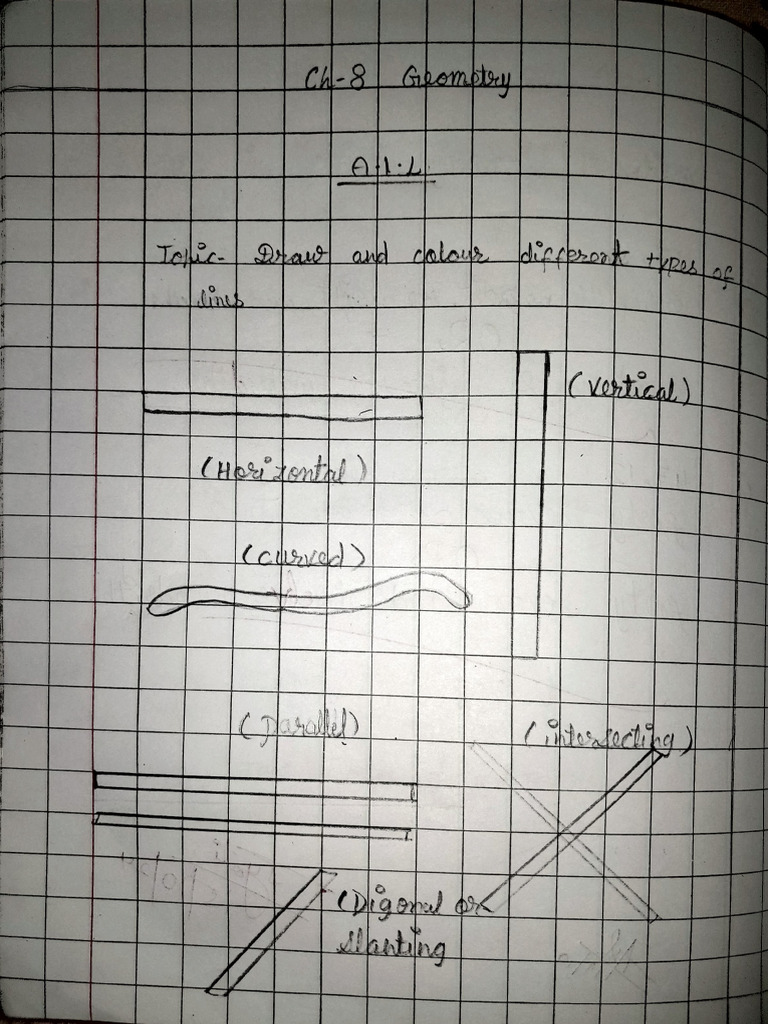 Ch-8 Geometry
A.I.L.
Topic- Draw and colour different types of
lines
(vertical)
(Horizontal)
(curved)
(Parallel)
(intersecting)
(Digonal or
slanting